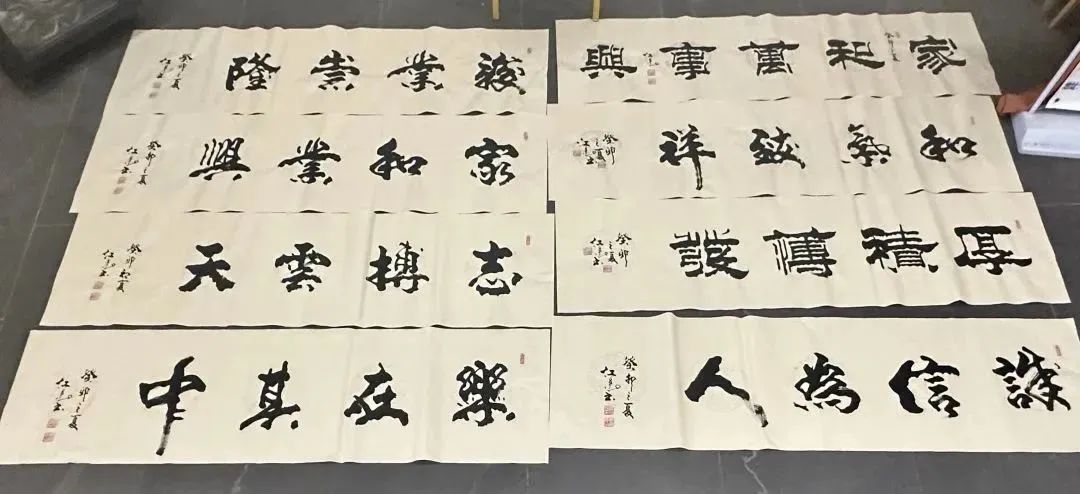 家和萬事興
癸卯之夏
和氣致祥
癸卯之夏
厚積薄發
癸卯之夏
誠信為人
癸卯之夏
駿業崇隆
癸卯之夏
家和業興
癸卯之夏
志搏雲天
癸卯之夏
樂在其中
癸卯之夏